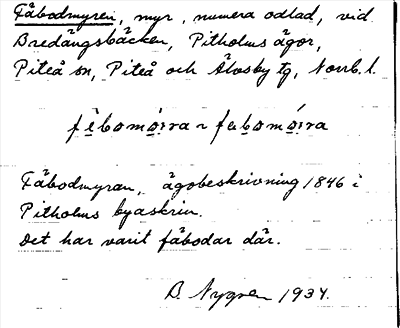 Fäbodmyren, myr, numera odlad, vid
Bredängsbäcken, Pitholms ägor,
Piteå sn, Piteå och Älvsby tg, Norrb. l.
fèbomó:ra ~ fæbomó:ra
Fäbodmyran, ägobeskrivning 1846 i
Pitholms byaskrin.
Det har varit fäbodar där.
B. Nygren 1934.